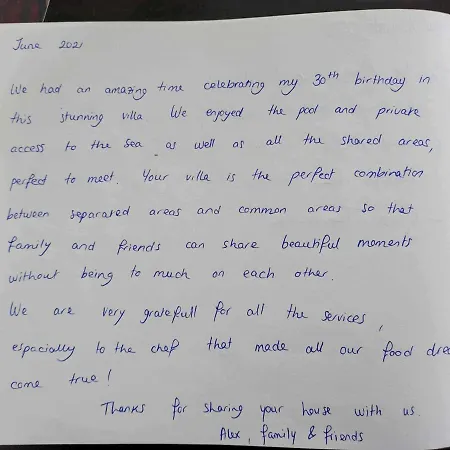 June 2021
We had an amazing time celebrating my 30th birthday in
this stunning villa We enjoyed the pool and private
access to the sea as well as all the shared areas,
perfect to meet. Your villa is the perfect combination
between separated areas and common areas so that
family and friends can share beautiful moments
without being to much on each other.
We are very gratefull for all the services,
espacially to the chef that made all our food drea
come true!
Thanks for sharing your house with us.
Alex, family & friends